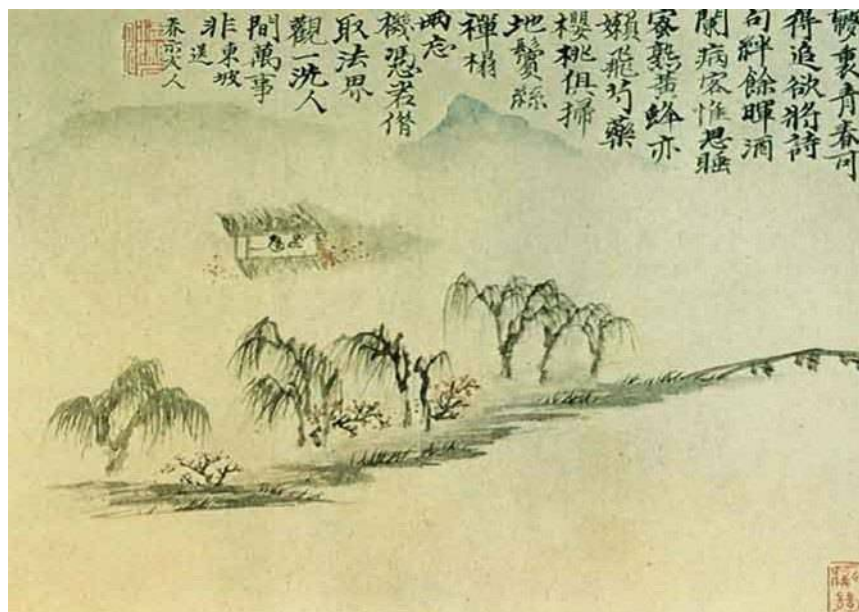 夢裏青春可
得追欲將詩
句絆餘暉酒
闌病客惟思睡
蜜熟黃蜂亦
嬾飛芍藥
櫻桃俱掃
地鬢絲
禪榻
兩忘
機憑君借
取法界
觀一洗人
間萬事
非東坡
送
春人